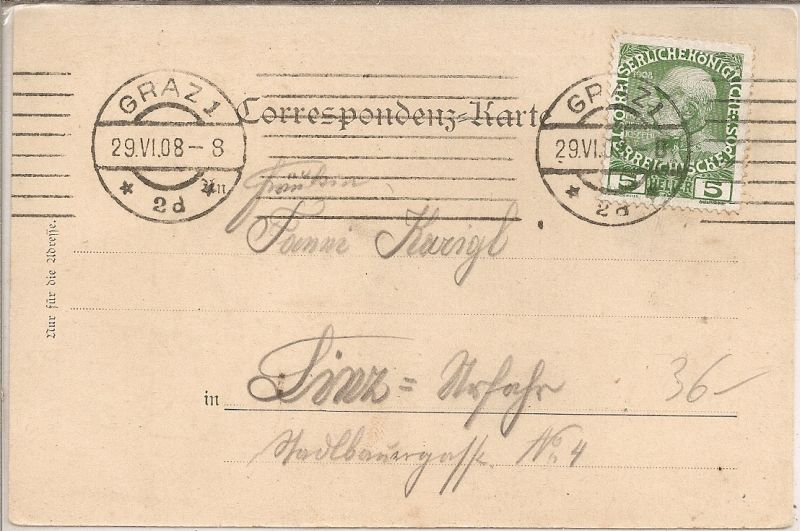 GRAZ 1
29.VI.08-8
2d
Correspondenz-Karte
GRAZ 1
29.VI.0
2d
KAISERLICHE KÖNIGLICHE
1908
ÖSTERREICHISCHE
5 5
An
Fräulein
Fanni Karigl
in Linz = Urfahr
36-
Stadlbauergasse No. 4
Nur für die Adresse.